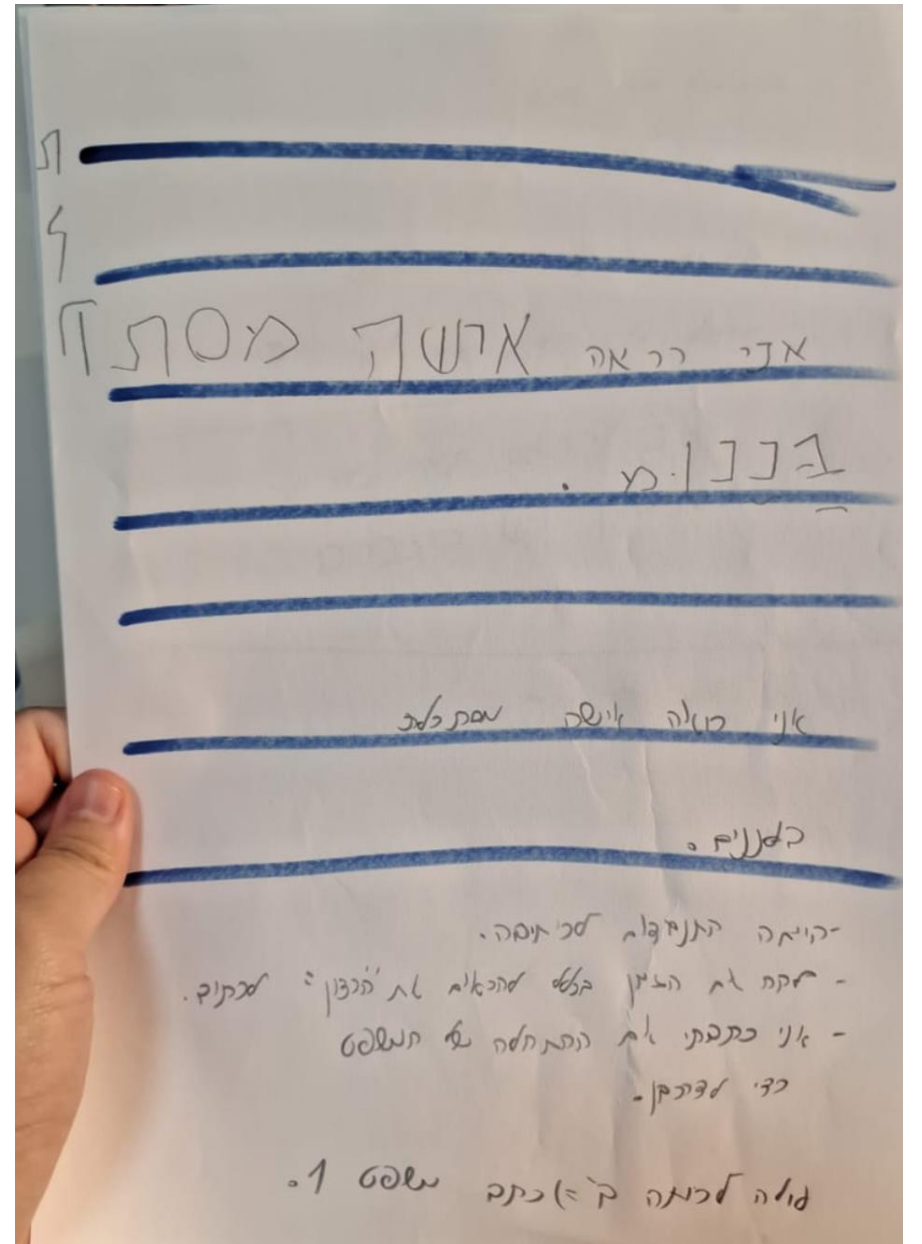 ת
ל
אני רואה אישה מסתכ
בננומ .
אני רואה אישה מסתכלת
בעננים.
-הייתה התנגדות לכתיבה.
- לקח את הזמן בכלל להראות את "הרצון" לכתוב.
- אני כתבתי את ההתחלה של המשפט
כדי לדרבן.
עולה לכיתה ב' => כתב משפט 1.